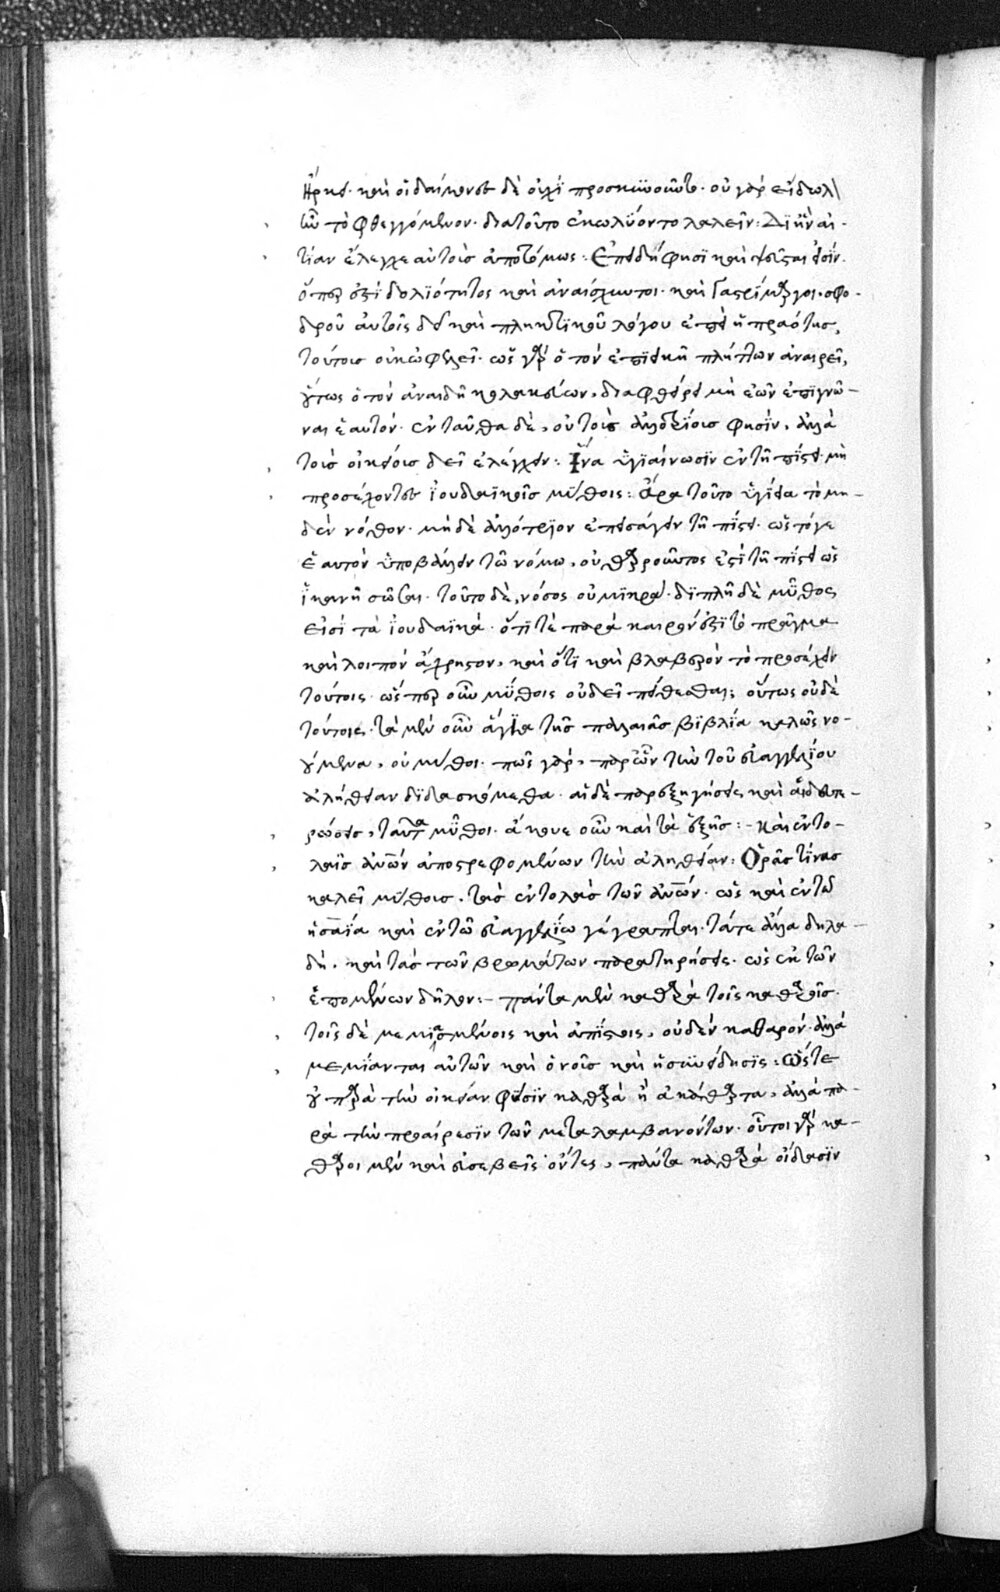 ἤρκει· καὶ οἱ δαίμονες δὲ οὐχὶ προσκυνοῦντο· οὐ γὰρ εἴδωλ
ὦν τὸ φθεγγόμενον· διατοῦτο ἐκωλύοντο λαλεῖν: Δι ἣν αἰ-
τίαν ἔλεγχε αὐτοὺς ἀποτόμως: Ἐπειδή φησι καὶ ψεῦσται εἰσίν·
ὅπερ ἐστὶ δολιότητος καὶ ἀναίσχυντοι· καὶ γαστρίμαργοι· σφο-
δροῦ αὐτοῖς δεῖ καὶ πληκτικοῦ λόγου ἐπεὶ ἡ πραότης,
τούτοις οὐκ ὠφελεῖ· ὡς γὰρ ὁ τὸν ἐπιεικῆ πλήττων ἀναιρεῖ,
οὕτως ὁ τὸν ἀναιδῆ κολακεύων, διαφθείρει μὴ ἐῶν ἐπιγνῶ-
ναι ἑαυτόν· ἐνταῦθα δὲ, οὐ τοὺς ἀλλοτρίους φησὶν, ἀλλὰ
τοὺς οἰκείους δεῖ ἐλέγχειν: Ἵνα ὑγιαίνωσιν ἐν τῆ πίστει μὴ
προσέχοντες ἰουδαϊκοῖς μύθοις: Ἄρα τοῦτο ὑγίεια τὸ μη-
δὲν νόθον· μὴ δὲ ἀλλότριον ἐπεισάγειν τῆ πίστει· ὡς τόγε
ἑαυτὸν ὑποβάλλειν τῶ νόμω, οὐ θαρροῦντος ἐστὶ τῆ πίστει ὡς
ἱκανῆ σῶσαι· τοῦτο δὲ, νόσος οὐ μικρά· διπλῆ δὲ μῦθος
εἰσὶ τὰ ἰουδαϊκά· ὅτι τὲ παρὰ καιρόν ἐστι τὸ πρᾶγμα
καὶ λοιπὸν ἄχρηστον, καὶ ὅτι καὶ βλαβερὸν τὸ προσέχειν
τούτοις· ὥσπερ οὖν μύθοις οὐ δεῖ πείθεσθαι; οὕτως οὐδὲ
τούτοις· τὰ μὲν οὖν ἅγια τῆς παλαιᾶς βιβλία καλῶς νο-
ούμενα, οὐ μῦθοι· πῶς γὰρ, παρ ὧν τὴν τοῦ εὐαγγελίου
ἀλήθειαν διδασκόμεθα· αἱ δὲ παρεξηγήσεις καὶ αἱ δευτε-
ρώσεις, ταῦτα μῦθοι· ἄκουε οὖν καὶ τὰ ἑξῆς:- Καὶ ἐντο-
λαῖς ἀνων ἀποστρεφομένων τὴν ἀλήθειαν: Ὁρᾶς τίνας
καλεῖ μύθους· τὰς ἐντολὰς τῶν ἀνων· ὡς καὶ ἐν τῶ
ἡσαΐα καὶ ἐν τῶ εὐαγγελίω γέγραπται· τάτε ἄλλα δηλα-
δή· καὶ τὰς τῶν βρωμάτων παρατηρήσεις· ὡς ἐκ τῶν
ἑπομένων δῆλον:- Πάντα μὲν καθαρὰ τοῖς καθαροῖς·
τοῖς δὲ μεμιασμένοις καὶ ἀπίστοις, οὐδὲν καθαρόν· ἀλλὰ
μεμίανται αὐτῶν καὶ ὁ νοῦς καὶ ἡ συνείδησις: Ὥστε
οὐ παρὰ τὴν οἰκείαν φύσιν καθαρὰ ἢ ἀκάθαρτα, ἀλλὰ πα-
ρὰ τὴν προαίρεσιν τῶν μεταλαμβανόντων· οὗτοι γὰρ κα-
θαροὶ μὲν καὶ εὐσεβεῖς ὄντες, πάντα καθαρὰ οἴδασιν